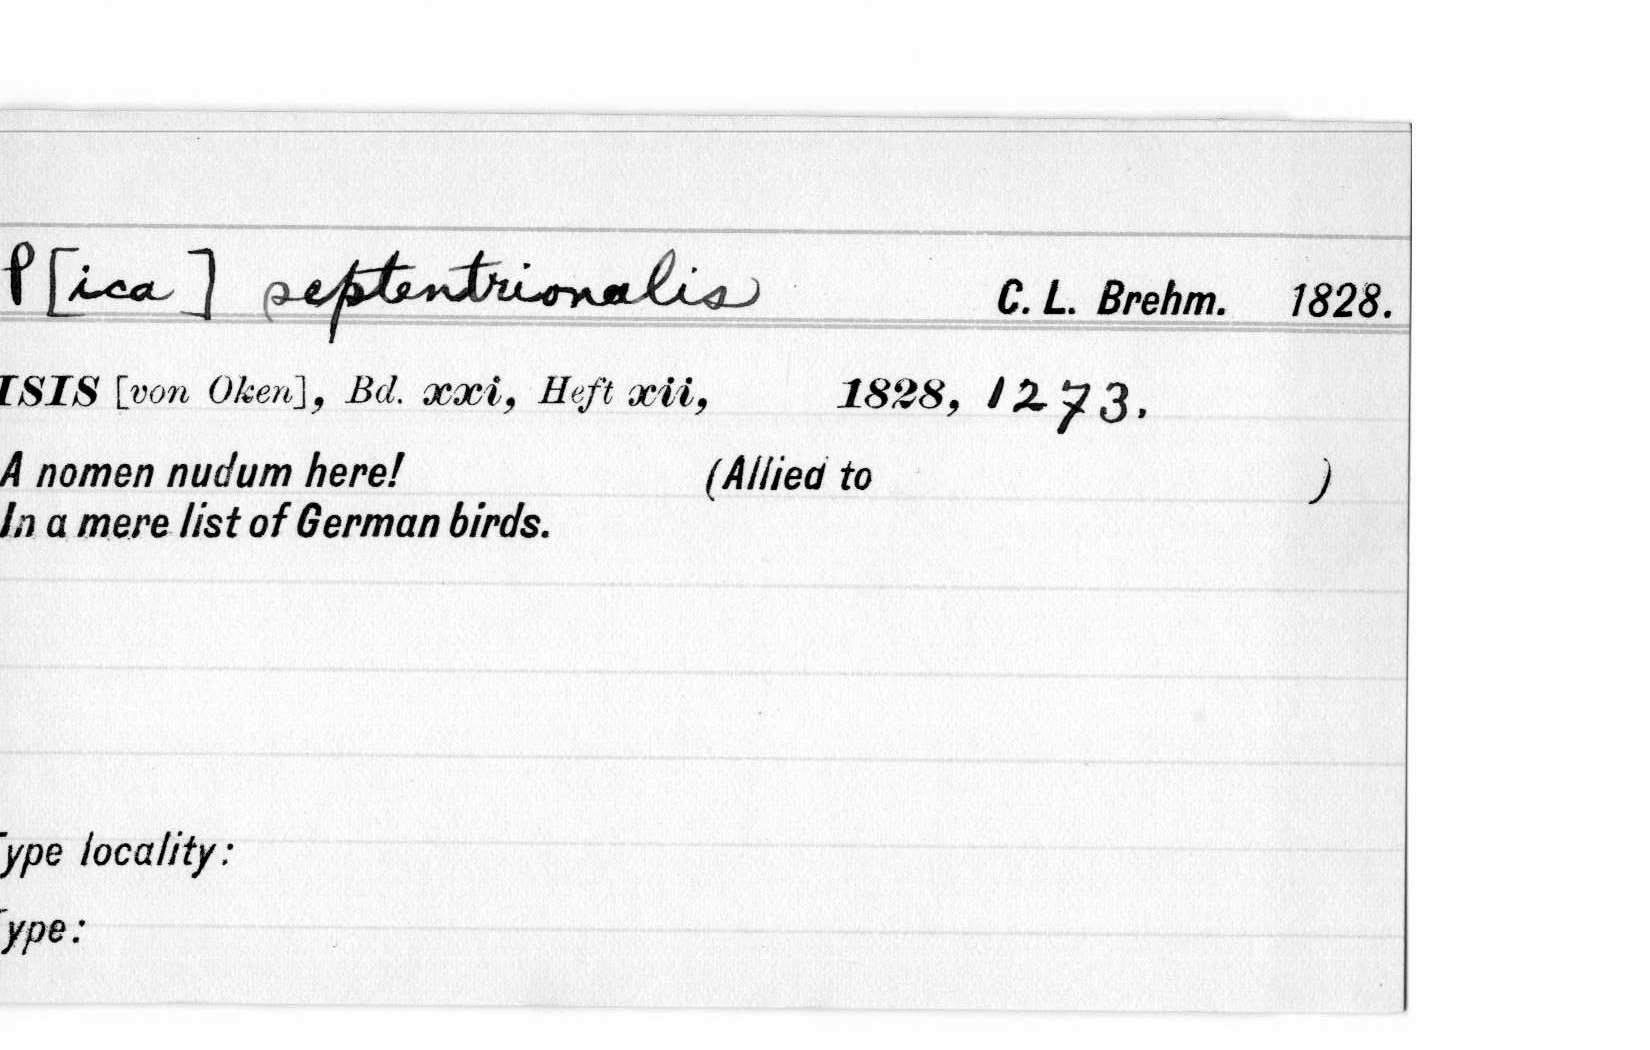 P[ica] septentrionalis C. L. Brehm. 1828.
ISIS [von Oken], Bd. xxi, Heft xii, 1828, 1273.
A nomen nudum here! (Allied to )
In a mere list of German birds.
Type locality:
Type: